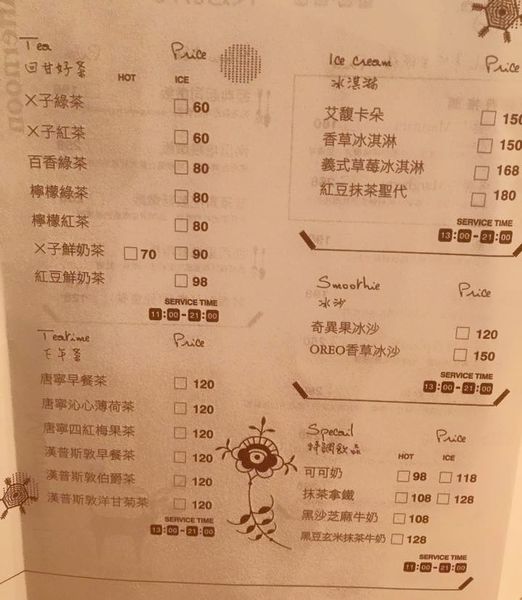 Tea Price
回甘好茶 HOT ICE
X子綠茶 60
X子紅茶 60
百香綠茶 80
檸檬綠茶 80
檸檬紅茶 80
X子鮮奶茶 70 90
紅豆鮮奶茶 98
SERVICE TIME
11:00-21:00
Teatime Price
下午茶
唐寧早餐茶 120
唐寧沁心薄荷茶 120
唐寧四紅梅果茶 120
漢普斯敦早餐茶 120
漢普斯敦伯爵茶 120
漢普斯敦洋甘菊茶 120
SERVICE TIME
13:00-21:00
Ice cream Price
冰淇淋
艾馥卡朵 150
香草冰淇淋 150
義式草莓冰淇淋 168
紅豆抹茶聖代 180
SERVICE TIME
13:00-21:00
Smoothie Price
冰沙
奇異果冰沙 120
OREO香草冰沙 150
SERVICE TIME
13:00-21:00
Specail Price
特調飲品 HOT ICE
可可奶 98 118
抹茶拿鐵 108 128
黑沙芝麻牛奶 108
黑豆玄米抹茶牛奶 128
SERVICE TIME
11:00-21:00